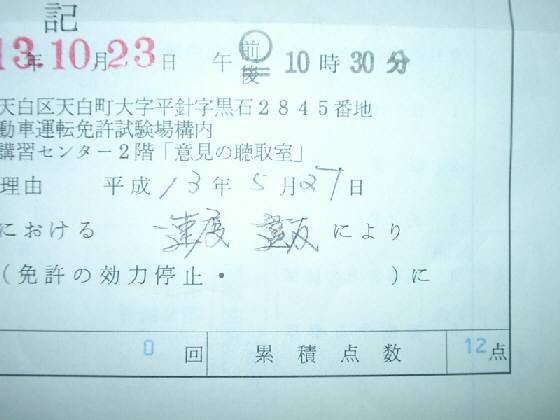 記
13.年10月23日 午前後 10時30分
天白区天白町大字平針字黒石2845番地
動車運転免許試験場構内
講習センター2階「意見の聴取室」
理由 平成13年5月27日
における 速度 違反により
(免許の効力停止・ )に
0回 累積点数 12点